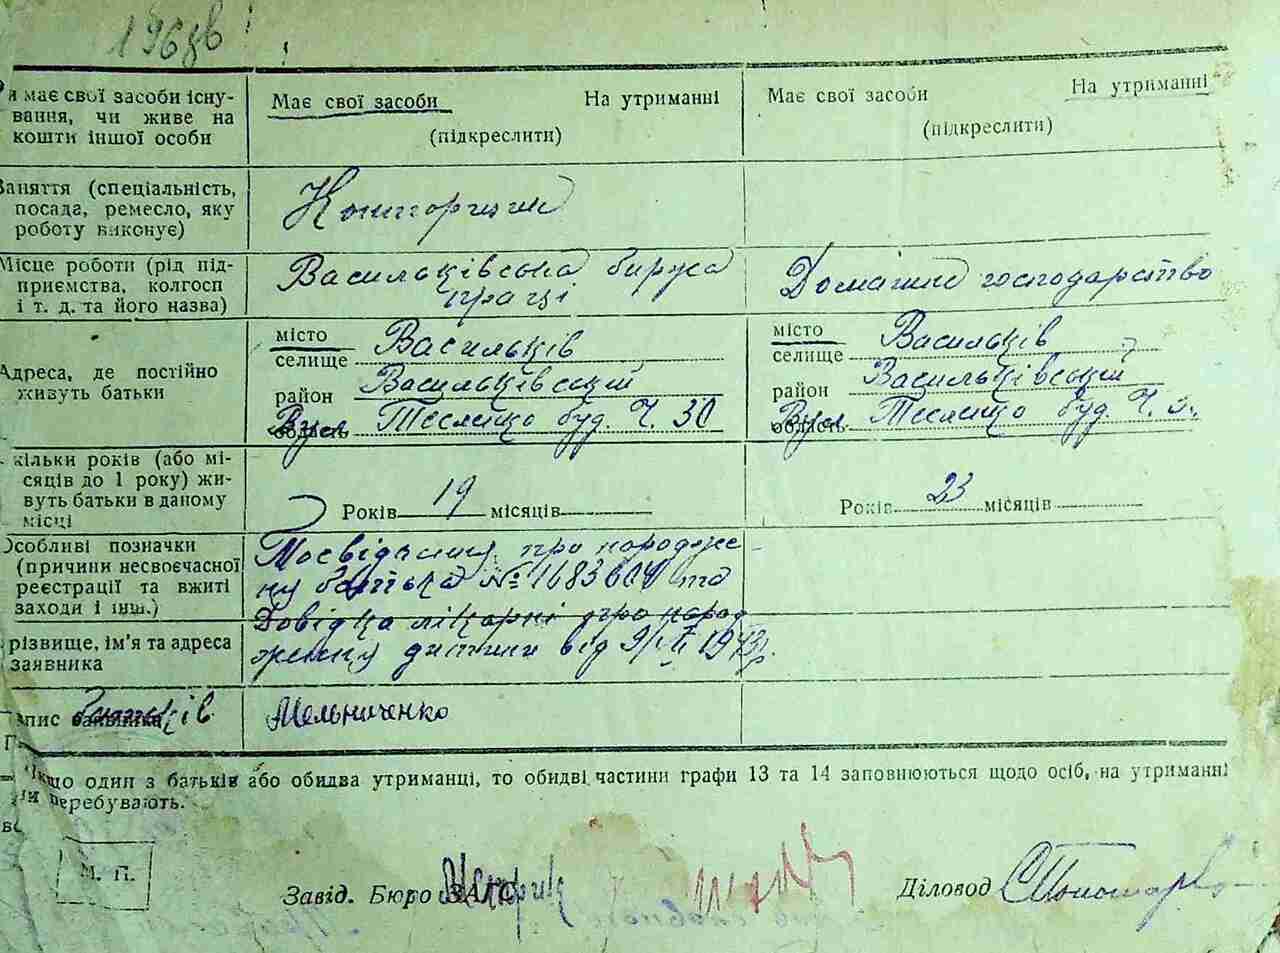 196
и має свої засоби існу-
вання, чи живе на
кошти іншої особи
Має свої засоби На утриманні
(підкреслити)
Має свої засоби На утриманні
(підкреслити)
Заняття (спеціальність,
посада, ремесло, яку
роботу виконує)
Місце роботи (рід під-
приємства, колгосп
і т. д. та його назва)
Васильківська біржа
праці
Домашнє господарство
Адреса, де постійно
живуть батьки
місто Васильків
селище
район Васильківський
область Вул Теслицко буд. Ч. 30
місто Васильків
селище
район Васильківський
область Вул Теслицко буд. Ч.
кільки років (або мі-
сяців до 1 року) жи-
вуть батьки в даному
місці
Років 19 місяців
Років 23 місяців
Особливі позначки
(причини несвоєчасної
реєстрації та вжиті
заходи і інш.)
Посвідчення про народже-
ння батька № та
Довідка лікарні про народ
ження дитини від 1943 р.
різвище, ім'я та адреса
заявника
пис заявника батьків
Мельниченко
Якщо один з батьків або обидва утриманці, то обидві частини графи 13 та 14 заповнюються щодо осіб, на утриманні
яких перебувають.
М. П.
Завід. Бюро ЗАГС
Діловод